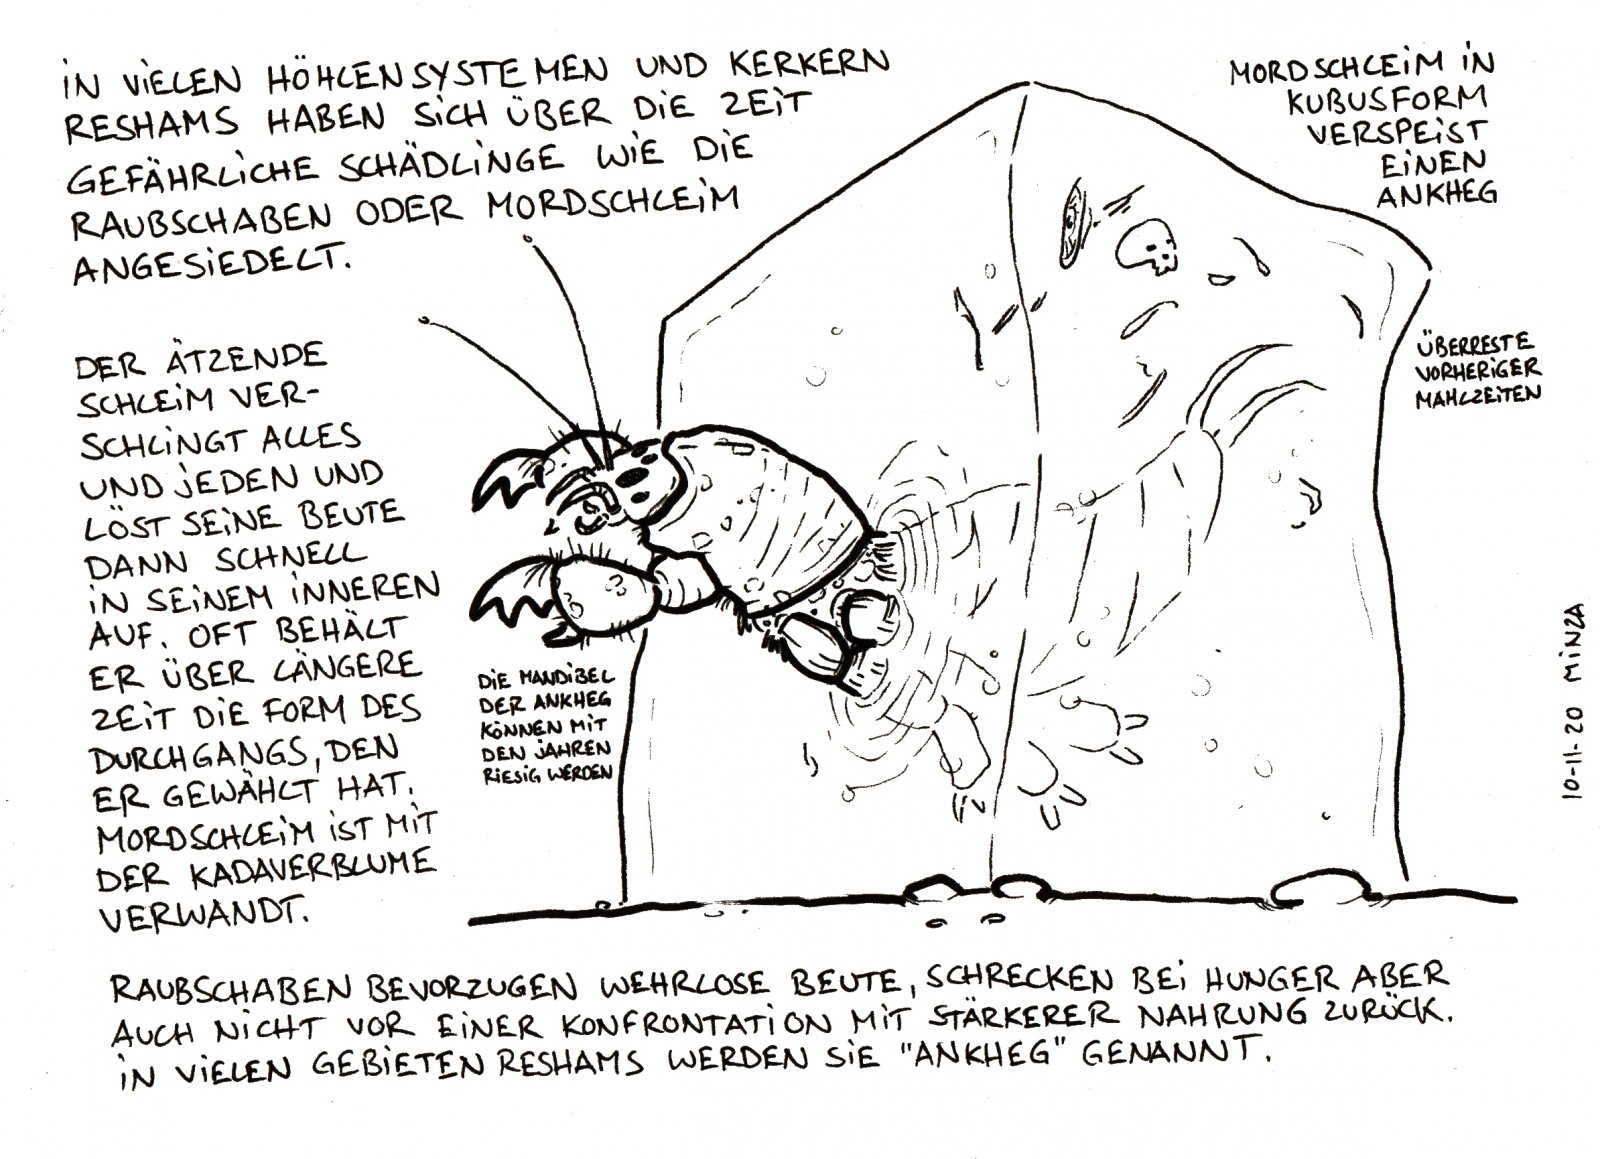 IN VIELEN HÖHLENSYSTEMEN UND KERKERN
RESHAMS HABEN SICH ÜBER DIE ZEIT
GEFÄHRLICHE SCHÄDLINGE WIE DIE
RAUBSCHABEN ODER MORDSCHLEIM
ANGESIEDELT.
MORDSCHLEIM IN
KUBUSFORM
VERSPEIST
EINEN
ANKHEG
DER ÄTZENDE
SCHLEIM VER-
SCHLINGT ALLES
UND JEDEN UND
LÖST SEINE BEUTE
DANN SCHNELL
IN SEINEM INNEREN
AUF. OFT BEHÄLT
ER ÜBER LÄNGERE
ZEIT DIE FORM DES
DURCHGANGS, DEN
ER GEWÄHLT HAT.
MORDSCHLEIM IST MIT
DER KADAVERBLUME
VERWANDT.
ÜBERRESTE
VORHERIGER
MAHLZEITEN
DIE MANDIBEL
DER ANKHEG
KÖNNEN MIT
DEN JAHREN
RIESIG WERDEN
10-11-20 MINZA
RAUBSCHABEN BEVORZUGEN WEHRLOSE BEUTE, SCHRECKEN BEI HUNGER ABER
AUCH NICHT VOR EINER KONFRONTATION MIT STÄRKERER NAHRUNG ZURÜCK.
IN VIELEN GEBIETEN RESHAMS WERDEN SIE "ANKHEG" GENANNT.